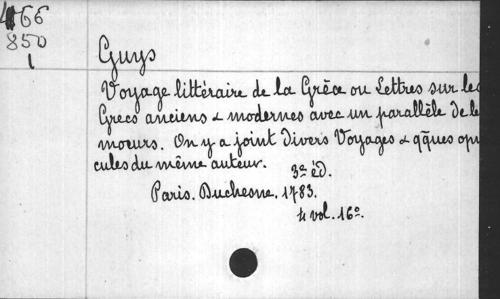 466
850
1
Guys
Voyage littéraire de la Grèce ou Lettres sur les
Grecs anciens & modernes avec un parallèle de le
moeurs. On y a joint divers Voyages & qques opu
cules du même auteur.
3e éd.
Paris. Duchesne. 1783.
4 vol. 16o.